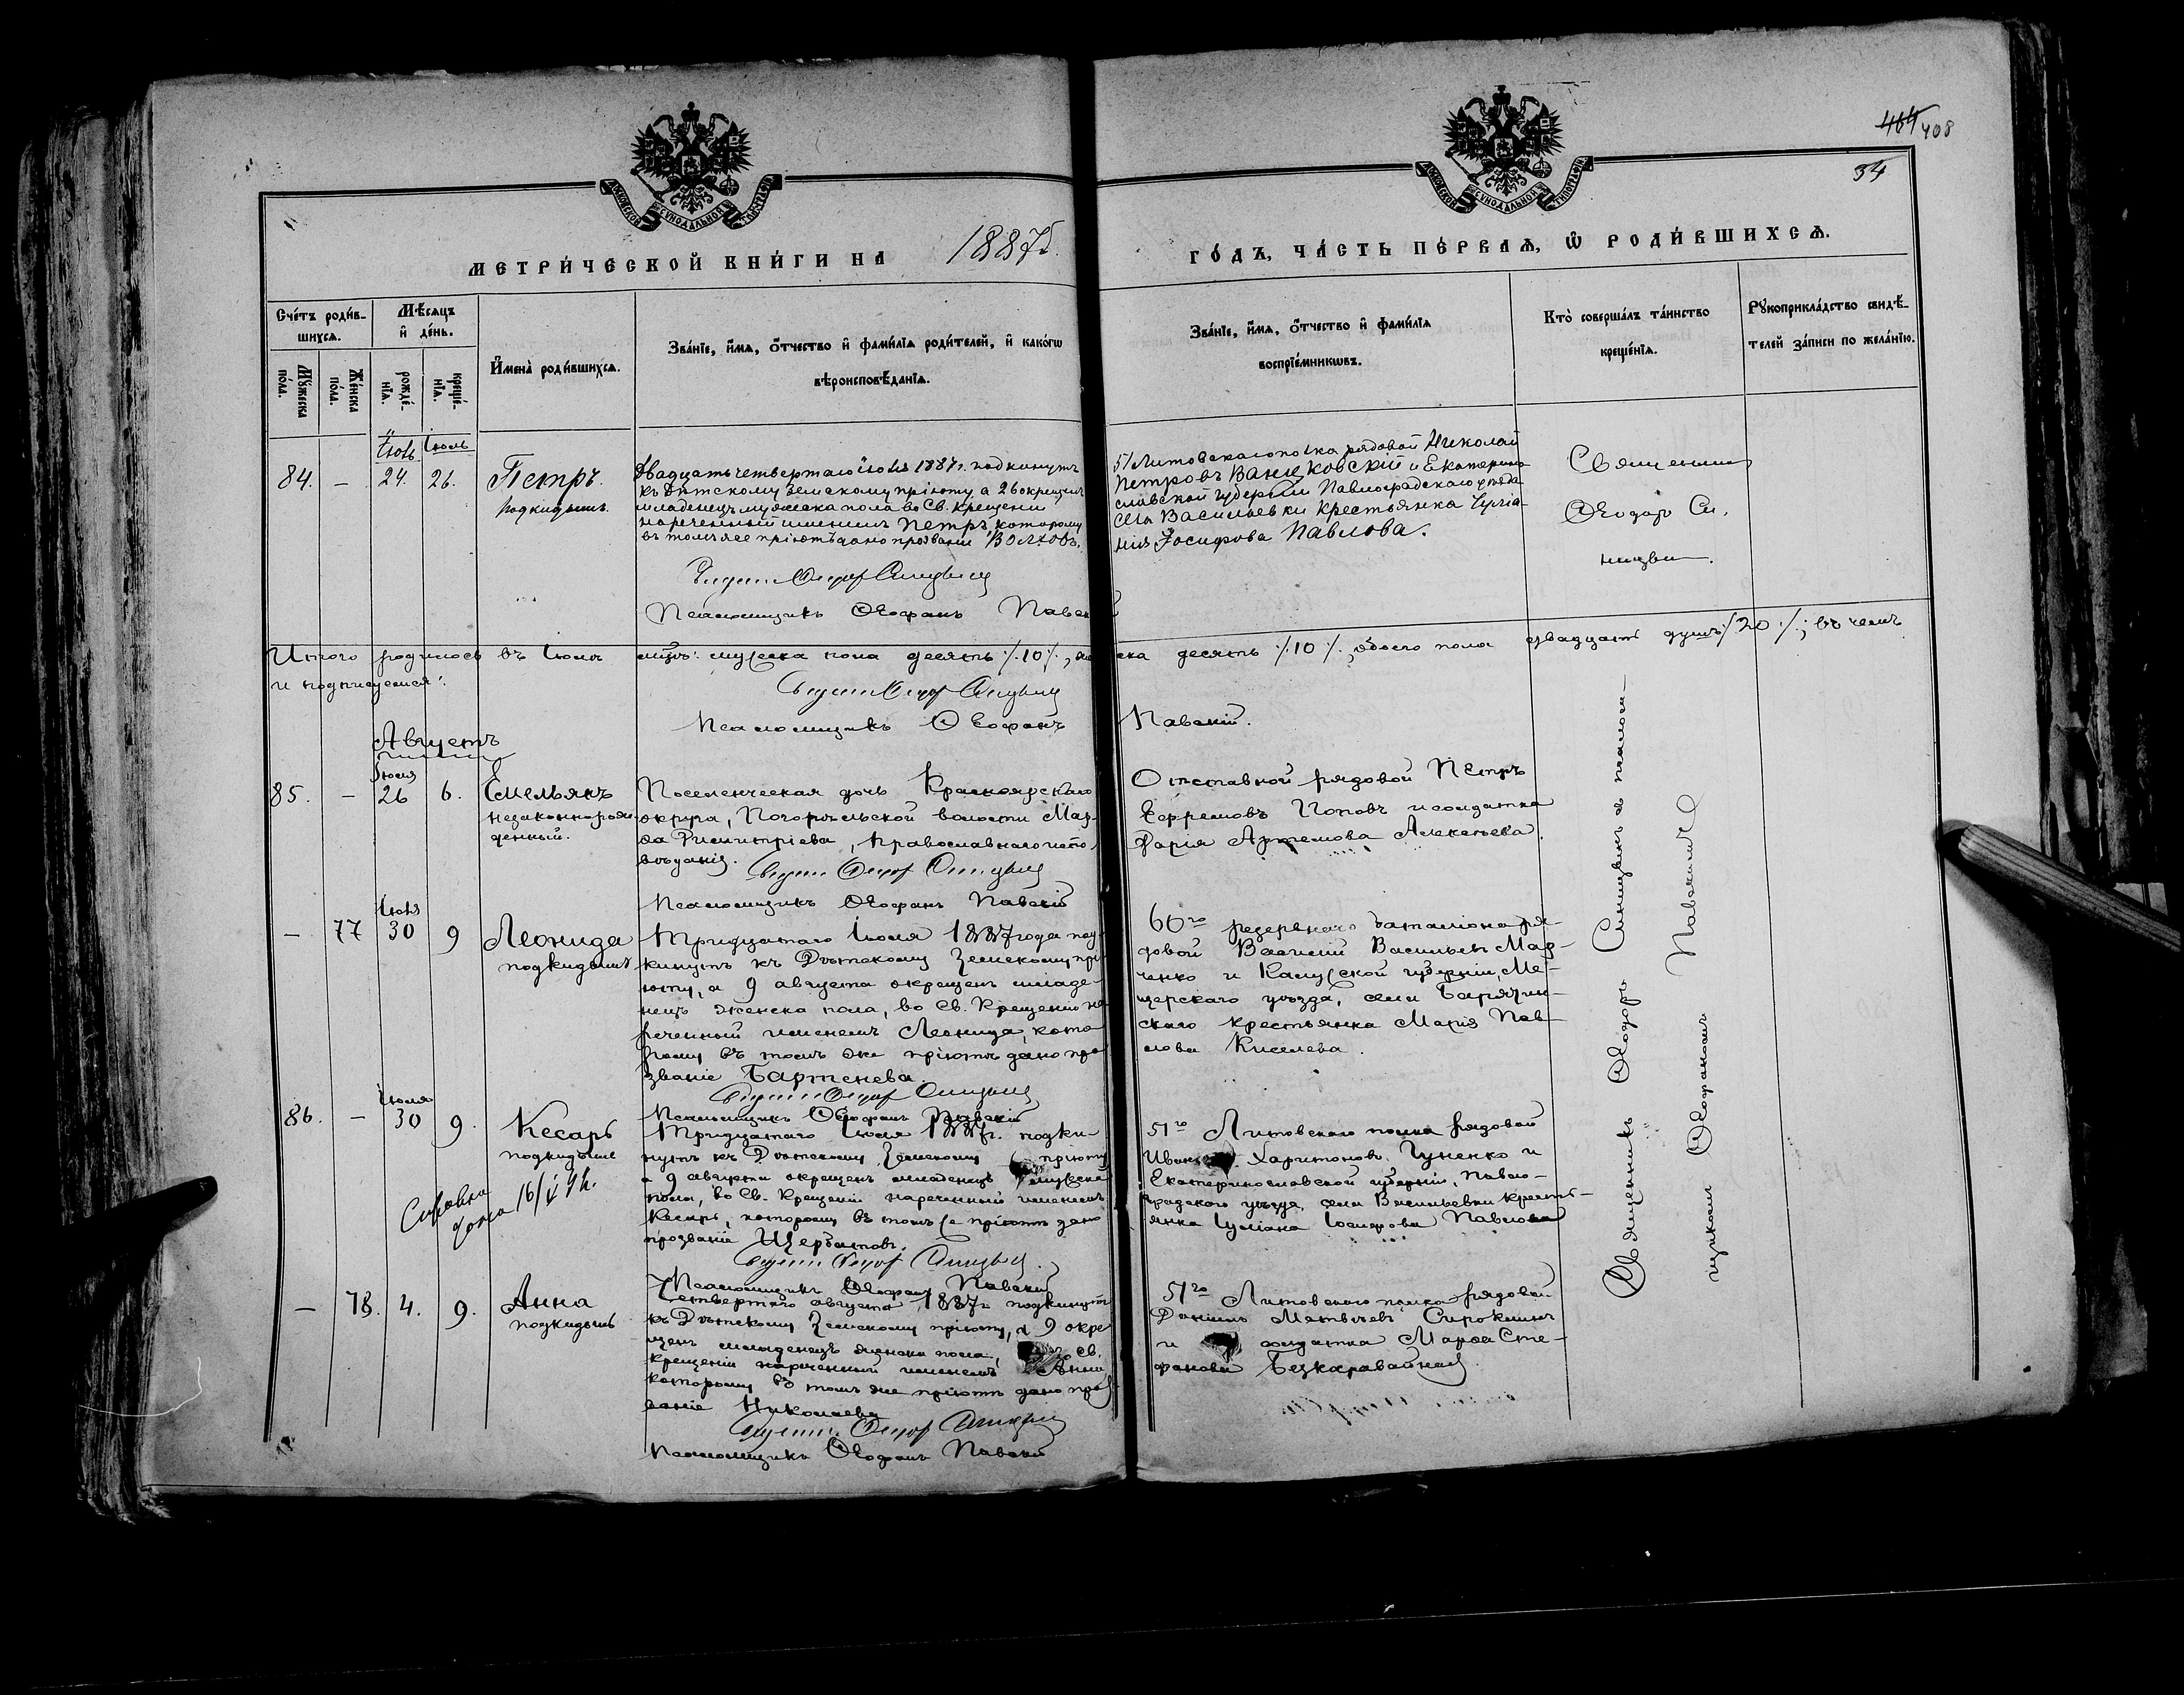 464 408
34
МОСКОВСКОЙ СѴНОДАЛЬНОЙ ТИПОГРАФІИ
МОСКОВСКОЙ СѴНОДАЛЬНОЙ ТИПОГРАФІИ
МЕТРИ́ЧЕСКОЙ КНИ́ГИ НА 1887 г.
ГО́ДЪ, ЧА́СТЬ ПЕ́РВАѦ, Ѡ҆ РОДИ́ВШИХСѦ.
Сче́тъ роди́в-
шихсѧ.
Мꙋ́жеска по́ла.
Же́нска по́ла.
Мѣ́сѧцъ
и҆ де́нь.
рожде́-нїѧ.
креще́-нїѧ.
И҆мена̀ роди́вшихсѧ.
Зва́нїе, и҆́мѧ, ѻ҆́тчество и҆ фами́лїѧ роди́телей, и҆ како́гѡ
вѣроисповѣ́данїѧ.
Зва́нїе, и҆́мѧ, ѻ҆́тчество и҆ фами́лїѧ
воспрїе́мникѡвъ.
Кто̀ соверша́лъ та́инство
креще́нїѧ.
Рꙋкоприкла́дство свидѣ́-
телей за́писи по жела́нїю.
Іюль Іюль
84. – 24. 26. Петръ.
подкидышъ
Двадцать четвертаго Іюля 1887 г. подкинутъ
къ Дѣтскому Земскому пріюту, а 26 окрещенъ
младенецъ мужеска пола во Св. Крещеніи
нареченный именемъ Петръ, которому
въ томъ же пріютѣ дано прозваніе Волховъ.
Псаломщикъ Ѳеофанъ Павскій
51 Литовскаго полка рядовой Николай
Петровъ Ванцковскій и Екатерино
славской губерніи Павлоградскаго уѣзда
села Васильевки крестьянка Іуліа-
нія Іосифова Павлова.
Священникъ
Ѳеодоръ Си-
ницынъ.
Итого родилось въ Іюлѣ мѣс.: мужеска пола десять ./.10./., женска десять ./.10./., обоего пола двадцать душъ ./.20./.; въ чемъ
и подписуемся:
Псаломщикъ Ѳеофанъ Павскій.
Августъ
Іюля
85. – 26 6. Емельянъ
незаконнорож-
денный.
Поселенческая дочь Красноярскаго
округа, Погорѣльской волости Мар-
ѳа Димитріева, православнаго испо-
вѣданія.
Псаломщикъ Ѳеофанъ Павскій
Отставной рядовой Петръ
Ефремовъ Поповъ и солдатка
Дарія Артемова Алексѣева.
Іюля
– 77 30 9 Леонида
подкидышъ
Тридцатаго Іюля 1887 года под-
кинутъ къ Дѣтскому Земскому прі-
юту, а 9 августа окрещенъ младе-
нецъ женска пола, во Св. Крещеніи на-
реченный именемъ Леонида, кото-
рому въ томъ же пріютѣ дано про-
званіе Бартенева.
Псаломщикъ Ѳеофанъ Павскій
60го резервнаго баталіона ря-
довой Василій Васильевъ Мар-
ченко и Калужской губерніи, Ме-
щерскаго уѣзда, села Барятин-
скаго крестьянка Марія Пав-
лова Киселева.
Іюля
86. – 30 9. Кесарь
подкидышъ
Тридцатаго Іюля 1887 г. подки-
нутъ къ Дѣтскому Земскому пріюту
а 9 августа окрещенъ младенецъ мужеска
пола, во Св. Крещеніи нареченный именемъ
Кесарь, которому въ томъ же пріютѣ дано
прозваніе Щербатовъ.
Псаломщикъ Ѳеофанъ Павскій
51го Литовскаго полка рядовой
Иванъ Харитоновъ Гуненко и
Екатеринославской губерніи, Павло-
градскаго уѣзда, села Васильевки кресть-
янка Іуліана Іосифова Павлова
Справка
дана
– 78. 4. 9. Анна
подкидышъ
Четвертаго августа 1887 г. подкинутъ
къ Дѣтскому Земскому пріюту, а 9 окре-
щенъ младенецъ женска пола, во Св.
Крещеніи нареченный именемъ Анна
которому въ томъ же пріютѣ дано проз-
ваніе Николаева
Псаломщикъ Ѳеофанъ Павскій
51го Литовскаго полка рядовой
Даніилъ Матвѣевъ Сирокинъ
и солдатка Марѳа Сте-
фанова Безкаравайная.
Священникъ Ѳеодоръ Синицынъ съ псалом-
щикомъ Ѳеофаномъ Павскимъ